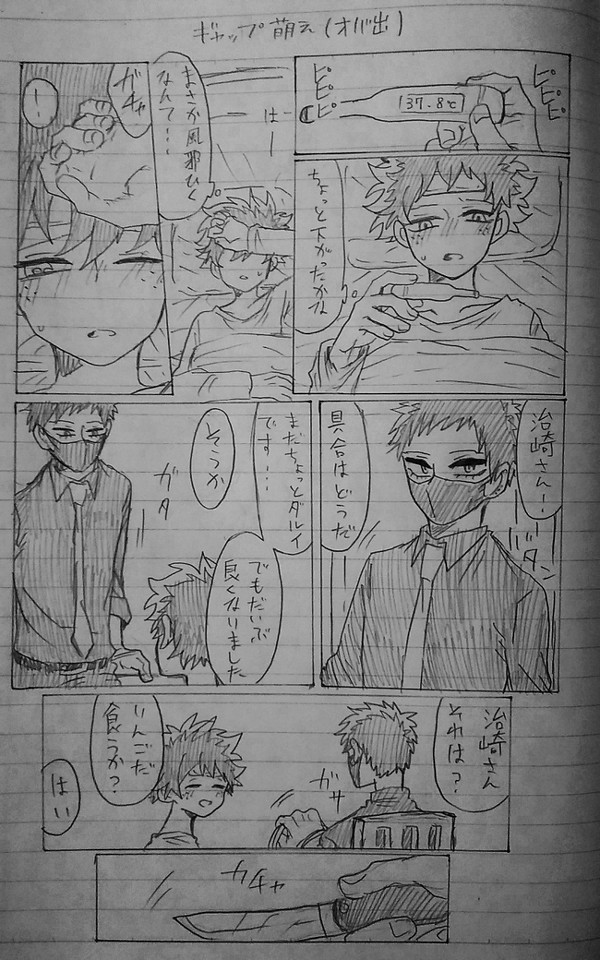 ギャップ萌え(オバ出)
ピピピ
ピピピ
37.8℃
ちょっと下がったかな
はー
まさか風邪ひく
なんて…
ガチャ
治崎さん…
バタン
具合はどうだ
まだちょっとダルイ
です…
でもだいぶ
良くなりました
そうか
ガタ
治崎さん
それは?
ガサ
りんごだ
食うか?
はい
カチャ